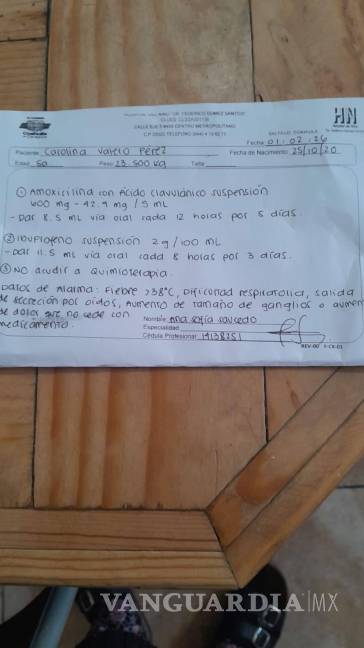 HOSPITAL DEL NIÑO "DR. FEDERICO GOMEZ SANTOS"
HN
Hospital del Niño
Fecha: 01.02.26
Paciente: Carolina Valero Pérez Fecha de Nacimiento: 25/10/20
Edad: 5a Peso: 23.500 kg Talla:
① Amoxicilina con Ácido clavulánico suspensión
600 mg - 42.9 mg / 5 mL
- Dar 8.5 mL vía oral cada 12 horas por 5 días.
② Ibuprofeno suspensión 2g/100 mL
- Dar 11.5 mL vía oral cada 8 horas por 3 días.
③ No acudir a quimioterapia.
Datos de alarma: Fiebre >38°C, dificultad respiratoria, salida
de secreción por oídos, aumento de tamaño de ganglios o aumento
de dolor que no cede con
medicamento.
Nombre: Ana Sofía Saucedo
Especialidad:
Cédula Profesional: 14138251
REV-00
VANGUARDIA|MX